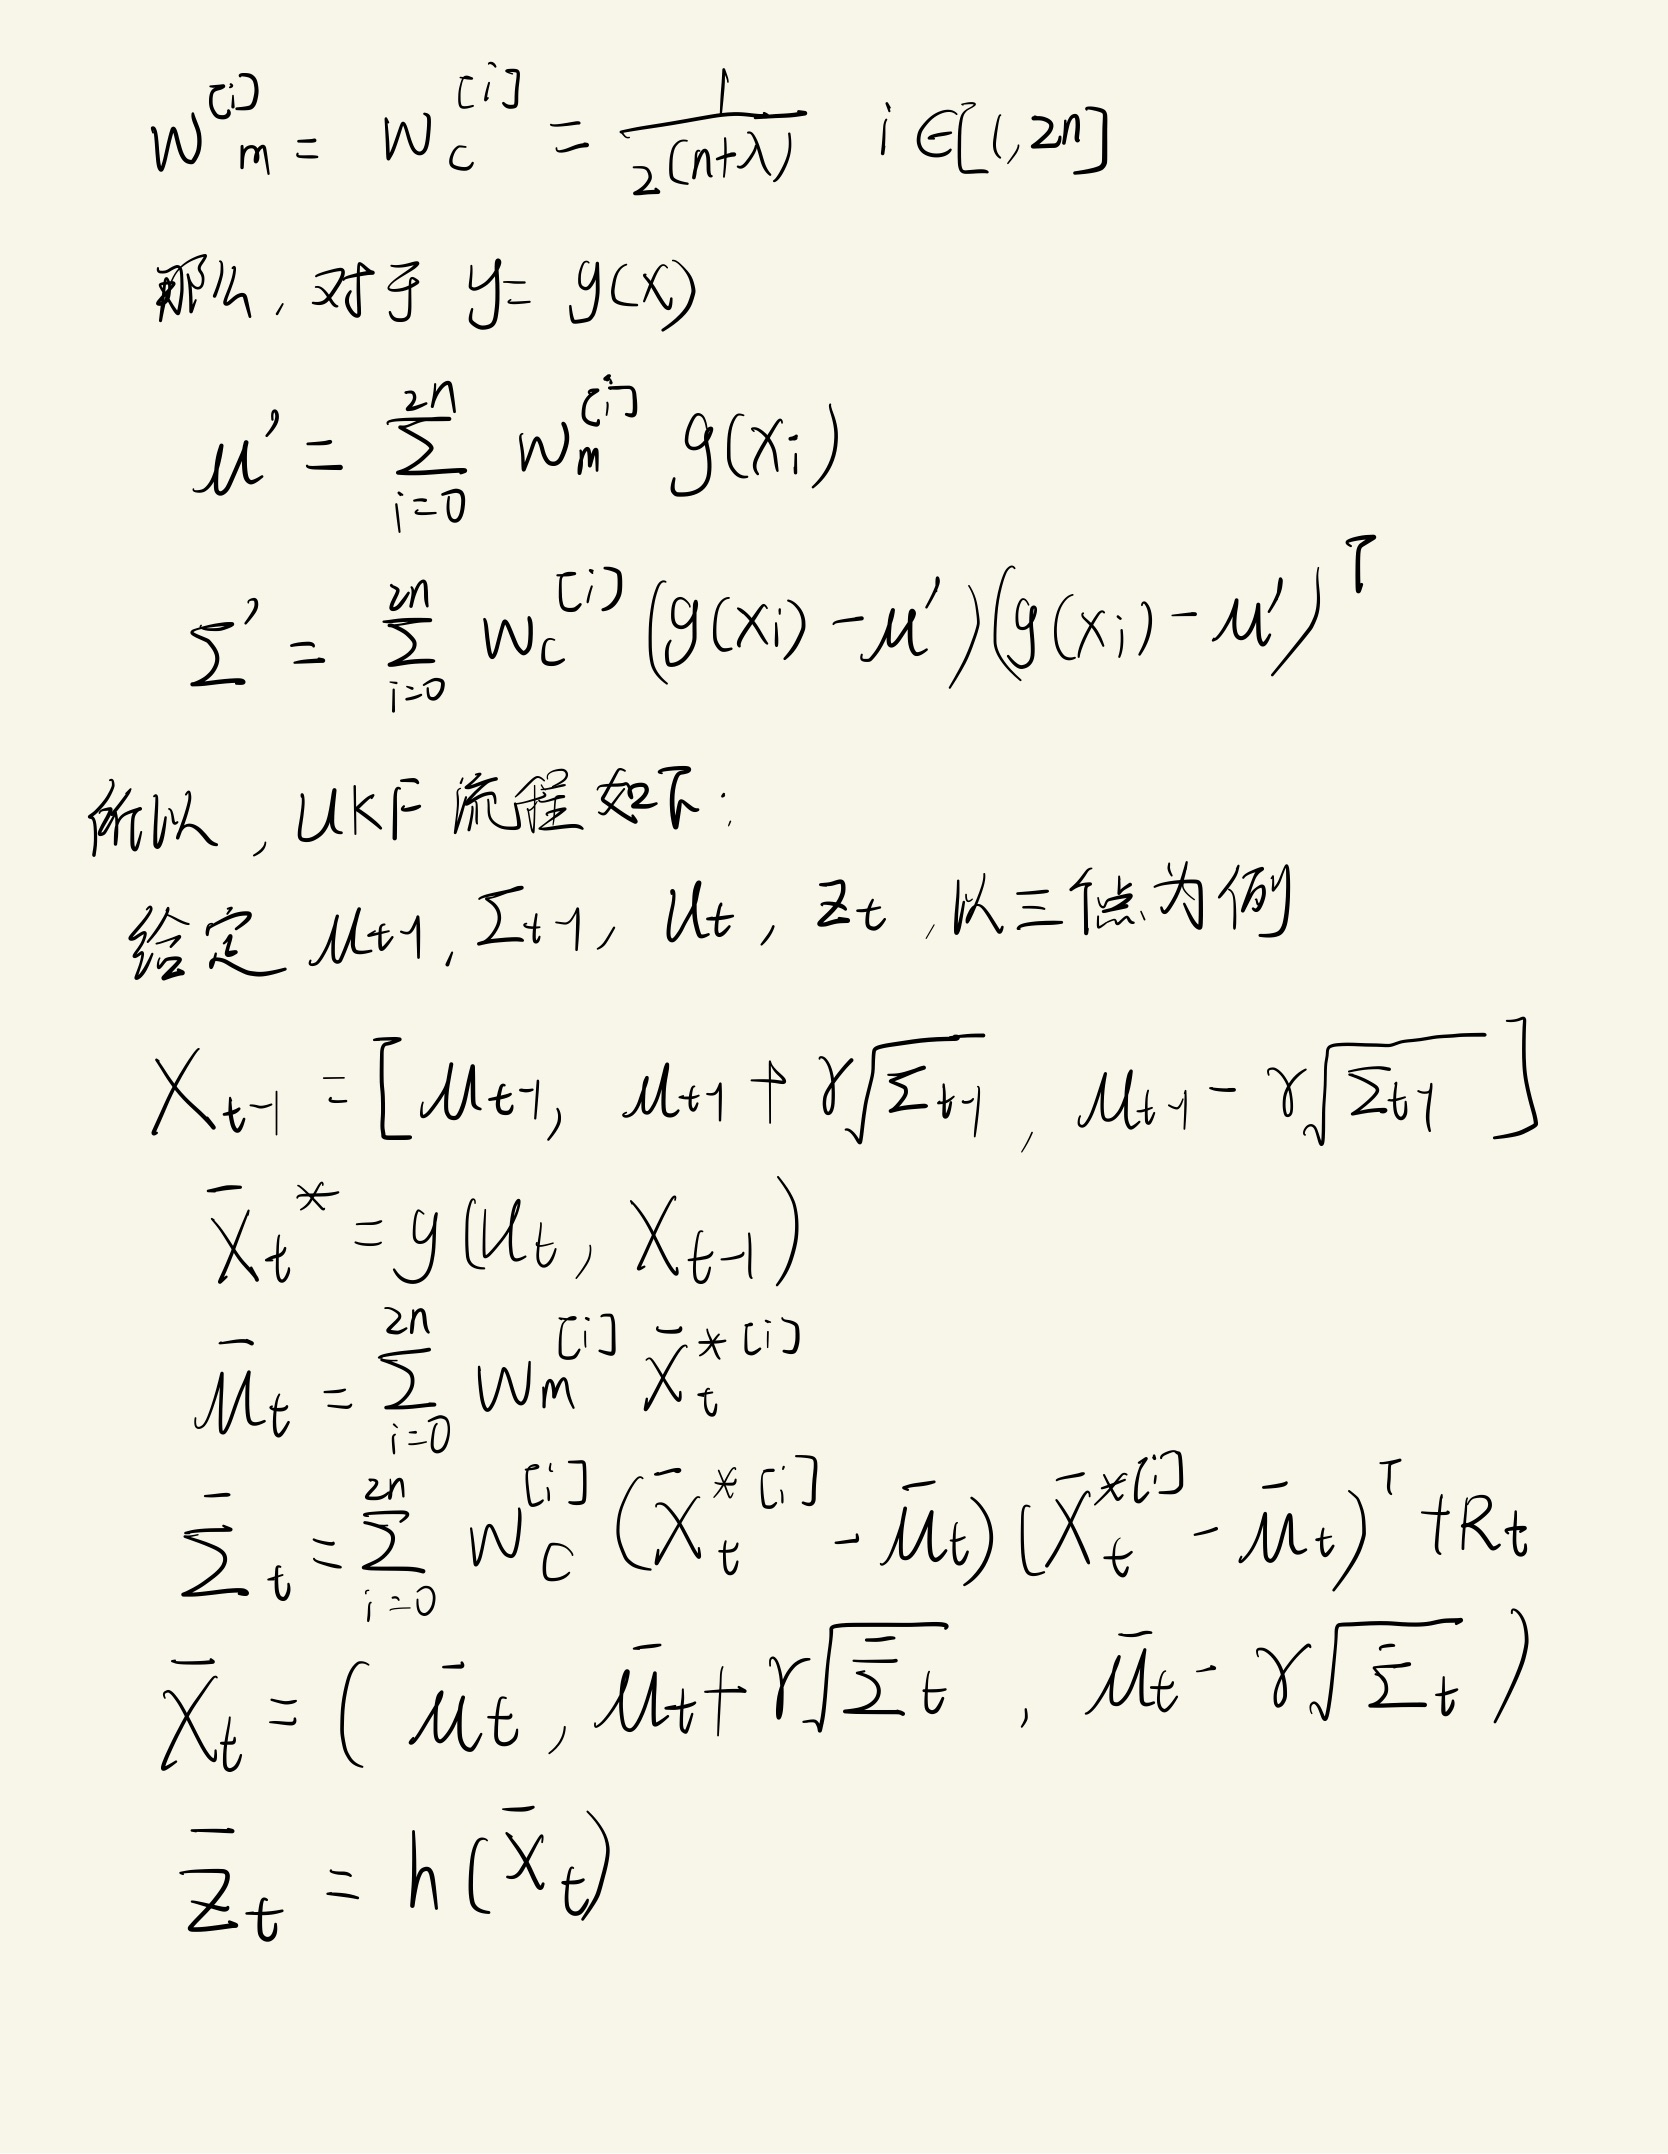 w_m^{[i]} = w_c^{[i]} = \frac{1}{2(n+λ)} i ∈ [1, 2n]
那么, 对于 y = g(x)
μ' = \sum_{i=0}^{2n} w_m^{[i]} g(x_i)
Σ' = \sum_{i=0}^{2n} w_c^{[i]} (g(x_i) - μ')(g(x_i) - μ')^T
所以, UKF 流程如下:
给定 μ_{t-1}, Σ_{t-1}, u_t, z_t, 以三个点为例
X_{t-1} = [μ_{t-1}, μ_{t-1} + γ\sqrt{Σ_{t-1}}, μ_{t-1} - γ\sqrt{Σ_{t-1}}]
\bar{X}_t^* = g(u_t, X_{t-1})
\bar{μ}_t = \sum_{i=0}^{2n} w_m^{[i]} \bar{X}_t^{*[i]}
\bar{Σ}_t = \sum_{i=0}^{2n} w_c^{[i]} (\bar{X}_t^{*[i]} - \bar{μ}_t)(\bar{X}_t^{*[i]} - \bar{μ}_t)^T + R_t
\bar{X}_t = (\bar{μ}_t, \bar{μ}_t + γ\sqrt{\bar{Σ}_t}, \bar{μ}_t - γ\sqrt{\bar{Σ}_t})
\bar{z}_t = h(\bar{X}_t)